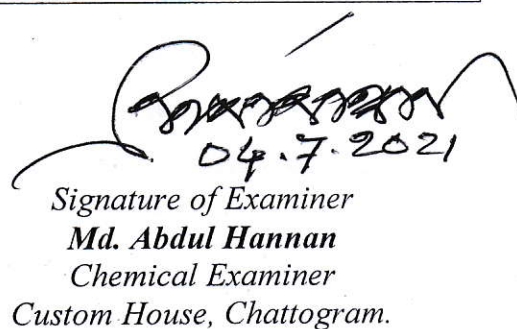 04.7.2021
Signature of Examiner
Md. Abdul Hannan
Chemical Examiner
Custom House, Chattogram.